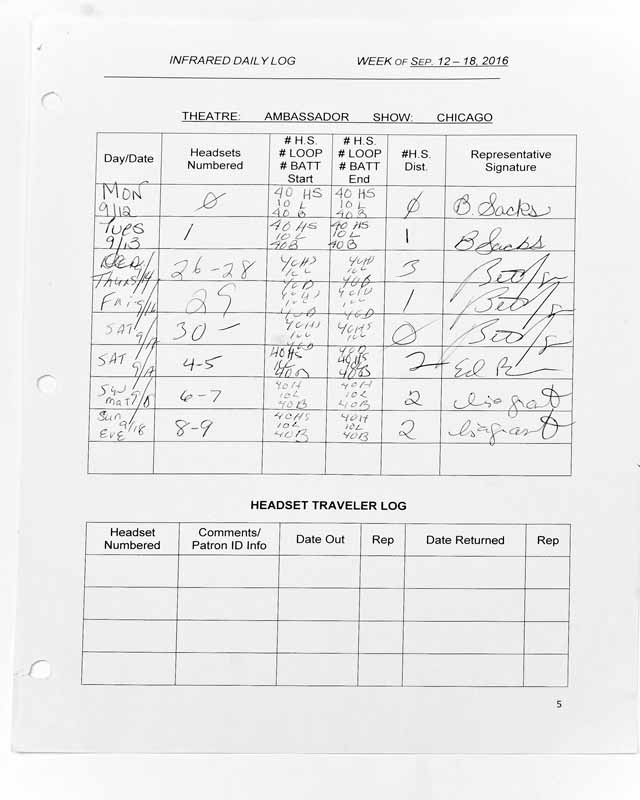 INFRARED DAILY LOG WEEK OF SEP. 12 – 18, 2016
THEATRE: AMBASSADOR SHOW: CHICAGO
Day/Date
Headsets
Numbered
# H.S.
# LOOP
# BATT
Start
# H.S.
# LOOP
# BATT
End
#H.S.
Dist.
Representative
Signature
MON
9/12
0
40 HS
10 L
40 B
40 HS
10 L
40 B
0
B. Sacks
TUES
9/13
1
40 HS
10 L
40B
40 HS
10 L
40B
1
B Sacks
Thurs
26-28
3
Fri
29
1
SAT
30 -
0
SAT
4-5
40HS
40B
40HS
40B
2
Ed
mat
6-7
40H
10L
40B
40H
10L
40B
2
Sun 9/18
EVE
8-9
40HS
10L
40B
40H
10L
40B
2
HEADSET TRAVELER LOG
Headset
Numbered
Comments/
Patron ID Info
Date Out
Rep
Date Returned
Rep
5